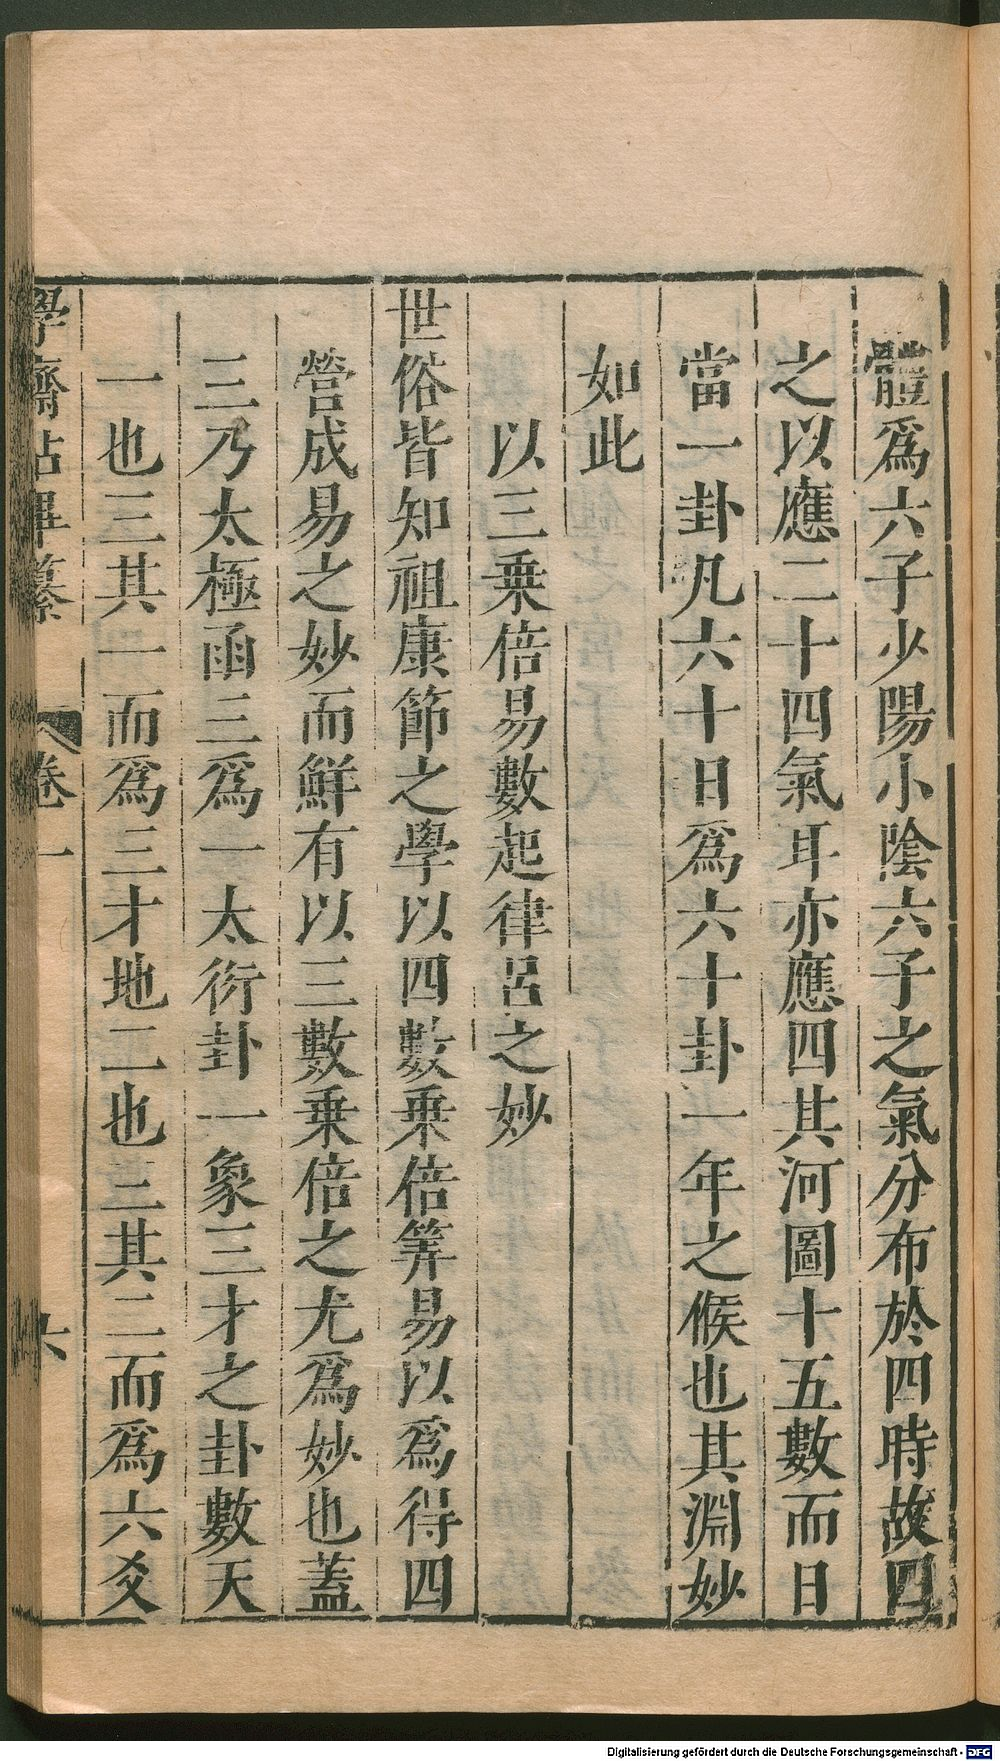 體爲六子少陽小陰六子之氣分布於四時故四
之以應二十四氣耳亦應四其河圖十五數而日
當一卦凡六十日爲六十卦一年之候也其淵妙
如此
以三乗倍易數起律呂之妙
世俗皆知祖康節之學以四數乗倍筭易以爲得四
營成易之妙而鮮有以三數乗倍之尤爲妙也蓋
三乃太極函三爲一太衍卦一象三才之卦數天
一也三其一而爲三才地二也三其二而爲六爻
學齋佔畢纂 卷一 六
Digitalisierung gefördert durch die Deutsche Forschungsgemeinschaft - DFG